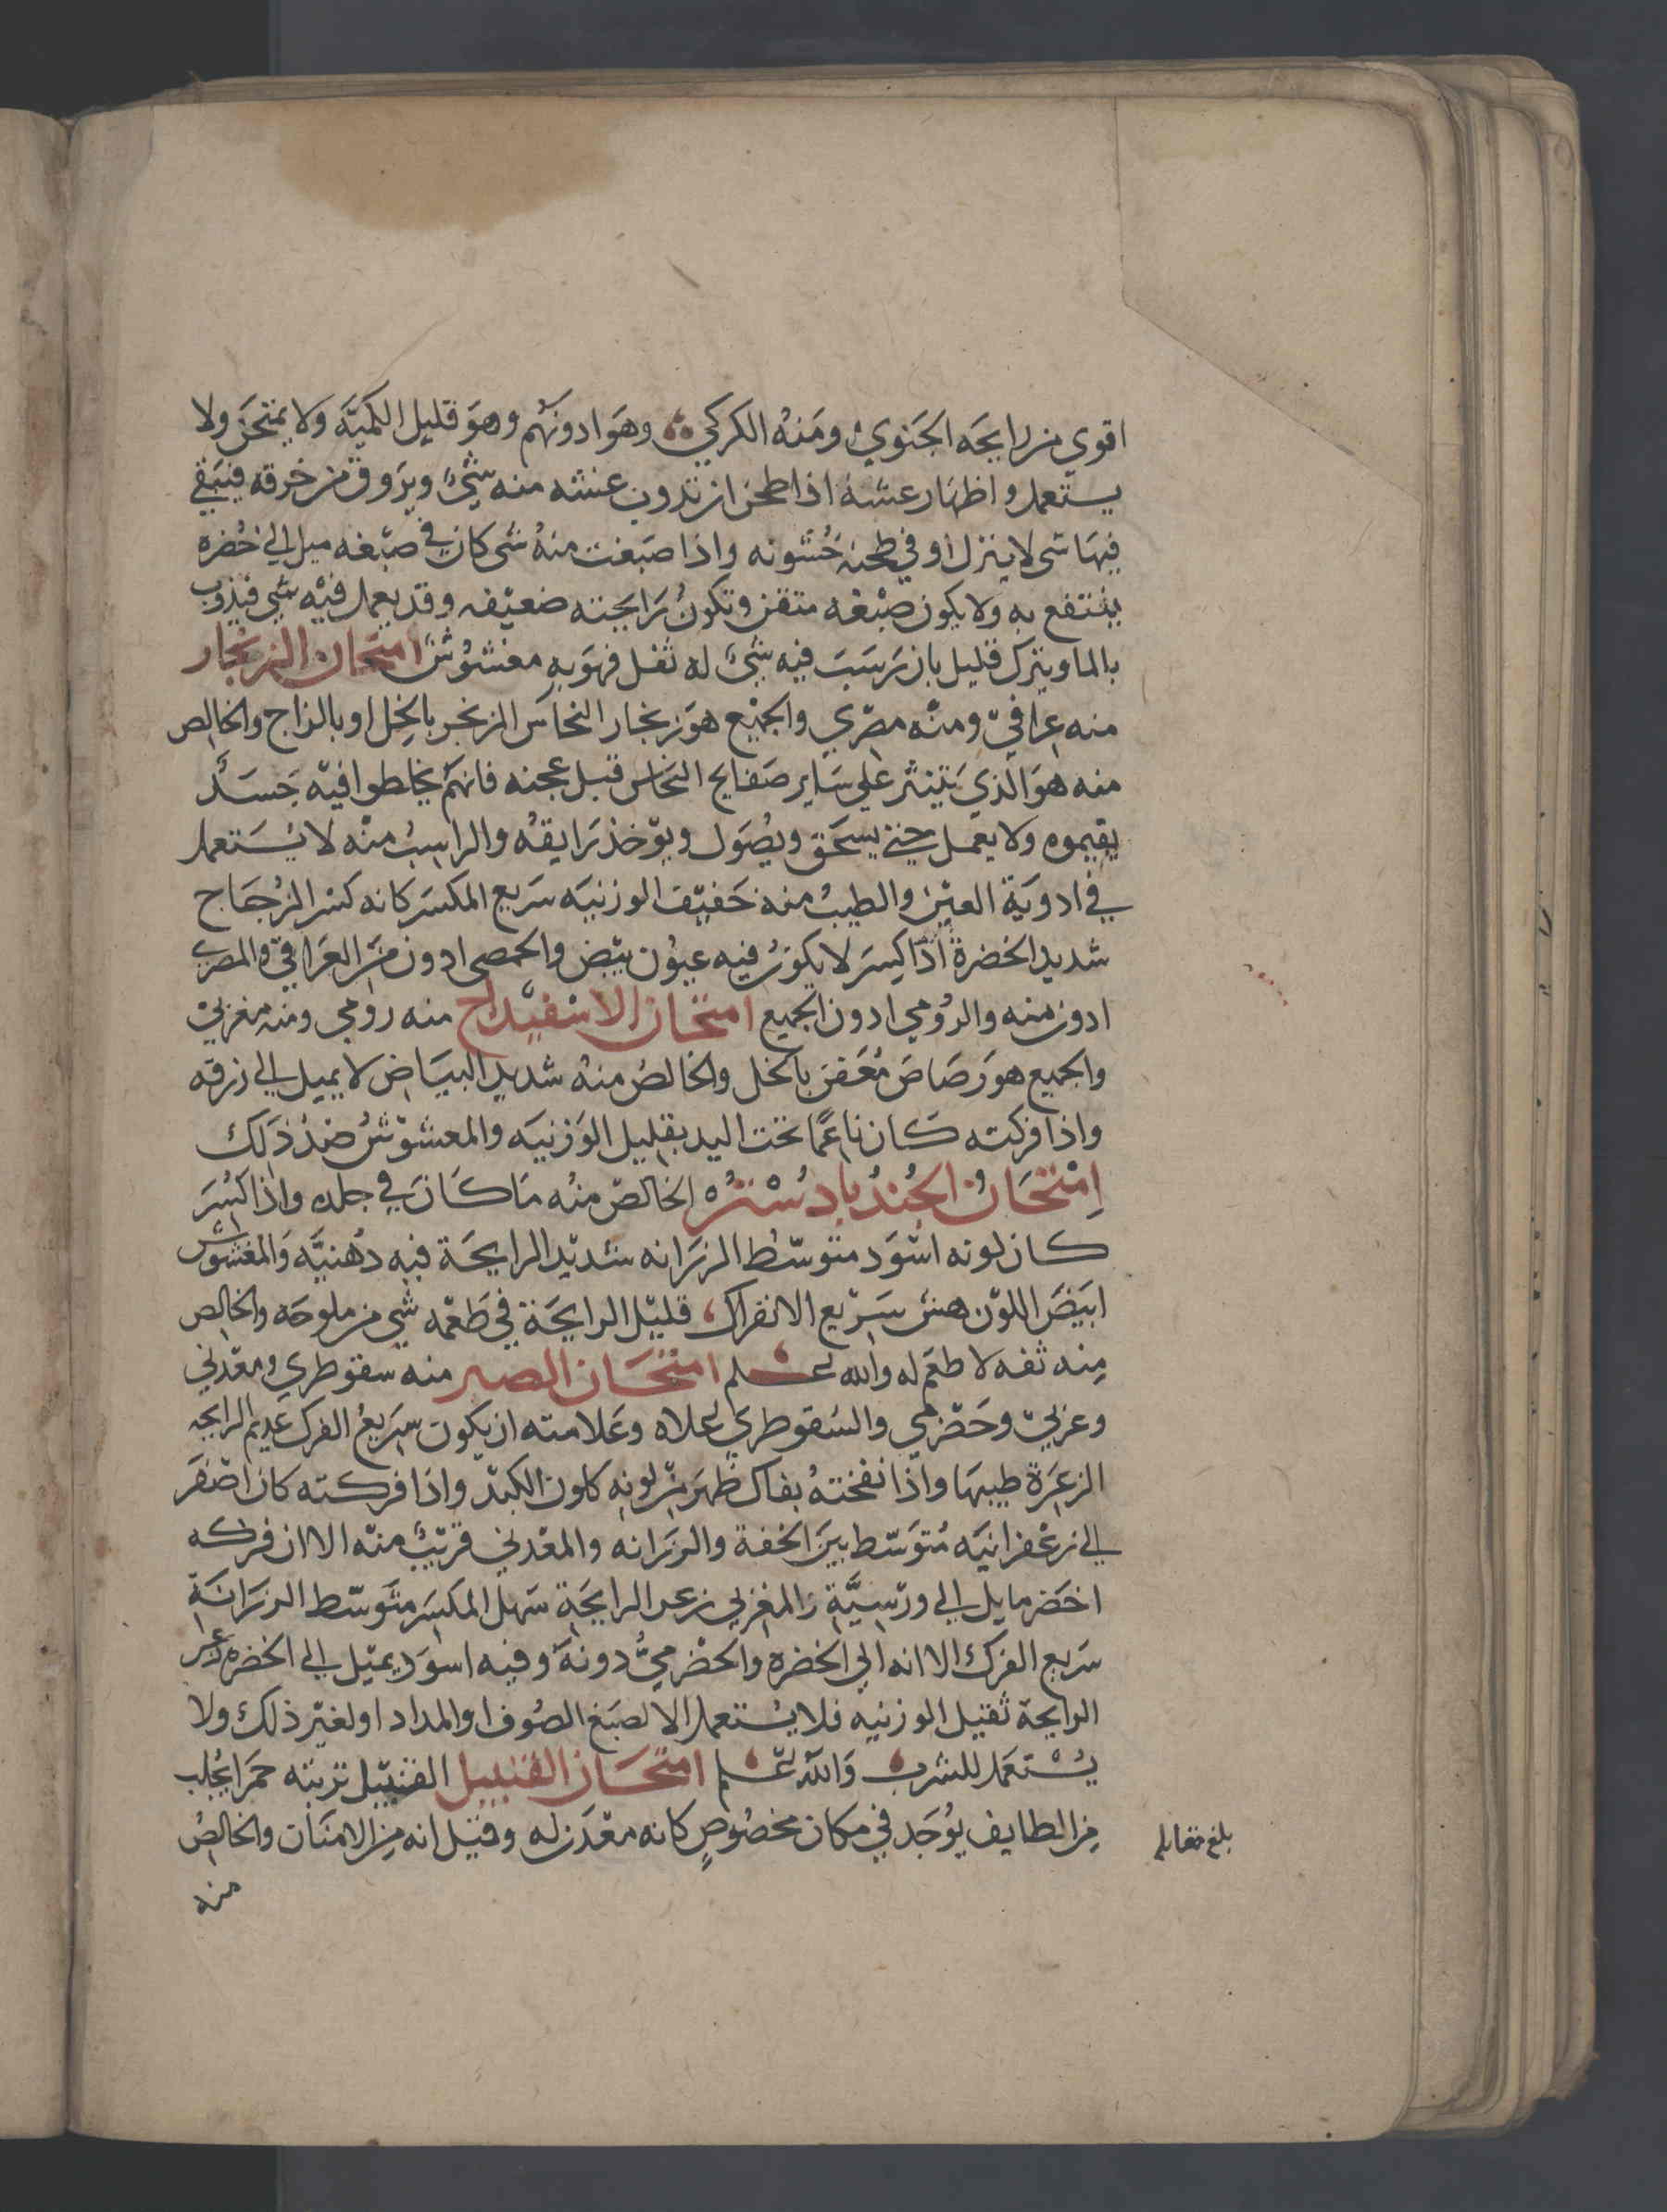 اقوي من رايحَه الجَنوي ومَنهُ الكركي وهَو ادونهُم وهوَ قليل الكميَّه ولا يمتحَن ولا
يستعمل واظهار غشهُ اذا طحن ان تدون غشه منه شيٌ ويروق من خرقه فيبَقي
فيهَا شي لا ينزل او في طحنهُ خُشونه واذا صَبغت منهُ شي كان في صبْغه ميل الي خُضره
ينتفع به ولا يكون صبْغه متقن وتكونُ رَايحَته ضعيْفه وقد يعمل فيْه شي فيذوب
بالما ويترك قليل بان رَسَبَ فيه شيٌ له ثقل فهوَ به مغشوُش امتحان الزنجار
منه عراقيّ ومنْه مصْري والجميْع هوَ زنجار النحاس المزنجر بالخل او بالزاج والخالص
منه هوَ الذي يَتينثر علي سَاير صَفايح النحاس قبل عجنه فانهُم يخلطوا فيْه جَسَدً
يقيموه ولا يعمل حتي يسحَق ويُصَول ويوْخذ رَايقهُ والراسِبُ منْه لا يُسَتعمل
في ادويَة العيْن والطيبُ منه خَفيْف الوزنيَه سَريع المكسَر كانه كسْر الزُجَاج
شديد الخضرة اذا كسِرَ لا يكونُ فيه عيوُن بيْض والحمصي ادون منَ العَراقيْ والمصري
ادون منه والرُومي ادون الجميع امتحان الاسْفيْداج منه رومي ومنه مغربيْ
والجميع هوَ رَصَاصَ مُعَفن بالخل والخالصُ منهُ شديد البيَاض لا يميل الي زرقه
واذا فركته كان ناعمًا تحت اليد بقليل الوَزنيَه والمعشوْشُ ضدُ ذلك
اِمْتحَانُ الجُندُ بادسْترُه الخالصْ منهُ مَا كَانَ في جلده واذا كُسِرَ
كان لونه اسْوَد متوسّط الرزَانه شديْد الرايحَة فيه دُهنيَّه وَالمغشوُش
ابيَضَ اللوْن هش سَريْع الانفراك قليْل الرايحَة في طَعْمه شي من ملوحَه والخالص
مِنه ثفه لا طعَم له والله اعلم امتحَان الصبر منه سقوطري ومعْدني
وعربيْ وحَضْرمي والسُقوطري اعلاه وعَلامته ان يكون سَريعُ الفرك عَديم الرايحه
الزعِرَة طيبهَا واذا نفختهُ بفاك ظهَر منْ لونِه كلون الكبَد واذا فركته كان اصْفَر
الي زعْفرانيَه مُتوَسّط بيَن الخفة والرزَانه والمعْدني قريْبٌ منْه الا ان فركه
اخضر مايل الي ورْسيَّة والمغربي زعر الرايحَة سَهل المكسَر متَوسّط الرزَانَة
سَريع الفرك الا انه الي الخضره والحضْرميُّ دونهَ وفيه اسوَد يميْل الي الخضره زعر
الرايحة ثقيل الوزنيه فلا يُستعمل الا لصَبغ الصُوف او المداد او لغيْر ذلك ولا
يُسْتعمَل للشرب وَالله اعلم امتحَان القنبيل القنبيْل تربته حمرَا يُجلب
من الطايف يوُجَد في مكان مخصُوصٍ كانه معْدَن له وقيْل انه مِن الامنَان والخالصُ
منه
بلغ مقابله